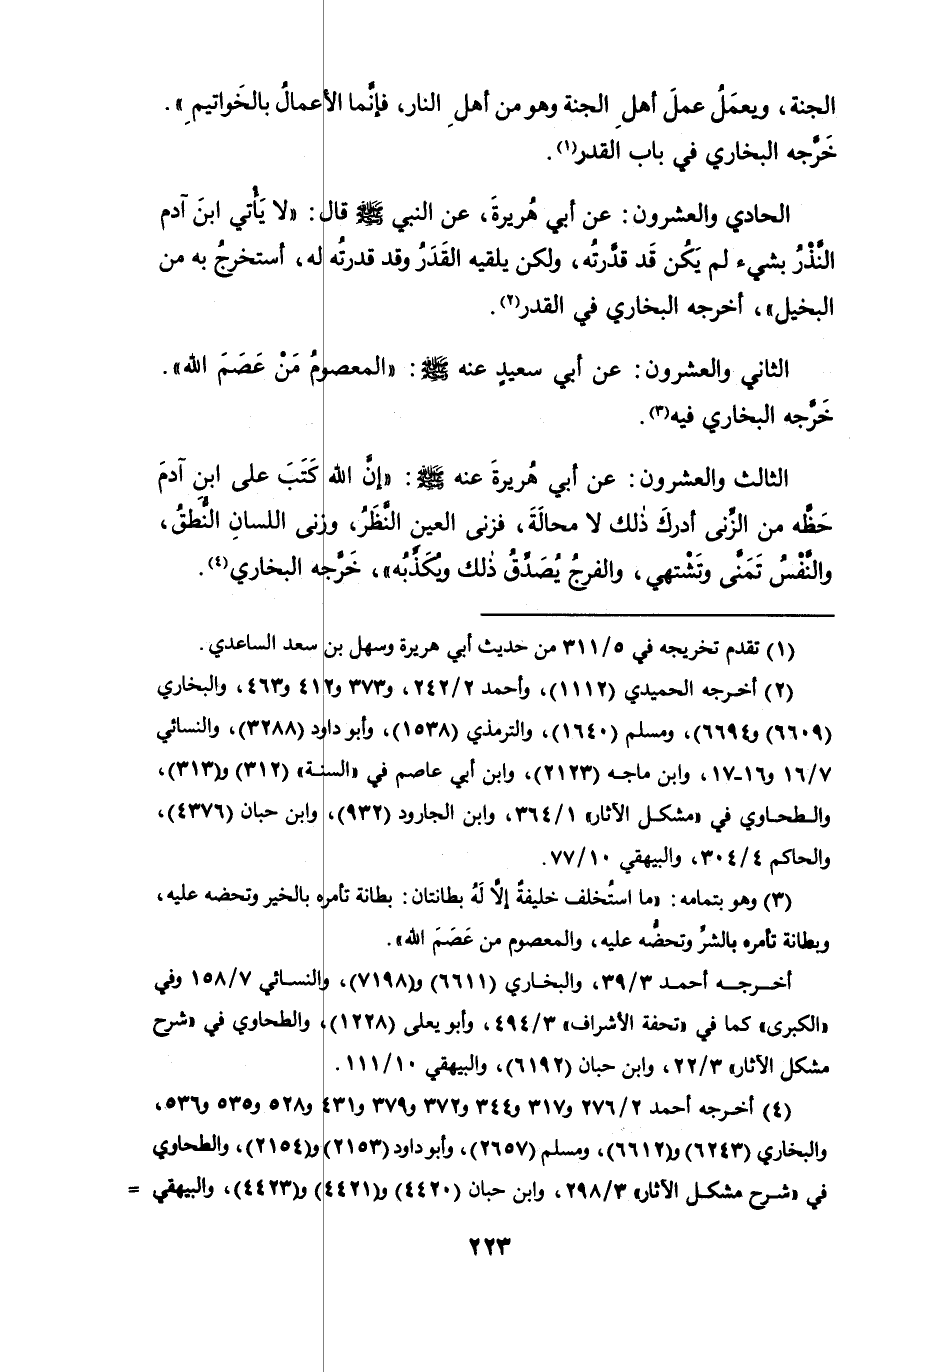 الجنة، ويعمَلُ عملَ أهلِ الجنة وهو من أهلِ النار، فإنَّما الأعمالُ بالخَواتيمِ».
خَرَّجه البخاري في باب القدر(١).
الحادي والعشرون: عن أبي هُريرةَ، عن النبي ﷺ قال: «لا يَأْتي ابنَ آدم
النَّذْرُ بشيء لم يَكُن قَد قدَّرتُه، ولكن يلقيه القَدَرُ وقد قدرتُه له، أستخرجُ به من
البخيل»، أخرجه البخاري في القدر(٢).
الثاني والعشرون: عن أبي سعيدٍ عنه ﷺ: «المعصومُ مَنْ عَصَمَ الله».
خَرَّجه البخاري فيه(٣).
الثالث والعشرون: عن أبي هُريرةَ عنه ﷺ: «إنَّ الله كَتَبَ على ابنِ آدمَ
حَظَّه من الزِّنى أدركَ ذٰلك لا محالَةَ، فزنى العينِ النَّظَرُ، وزنى اللسانِ النُّطقُ،
والنَّفْسُ تَمَنَّى وتَشْتهي، والفرجُ يُصَدِّقُ ذٰلك ويُكَذِّبُه»، خَرَّجه البخاري(٤).
(١) تقدم تخريجه في ٣١١/٥ من حديث أبي هريرة وسهل بن سعد الساعدي.
(٢) أخرجه الحميدي (١١١٢)، وأحمد ٢٤٢/٢، و٣٧٣ و٤١٢ و٤٦٣، والبخاري
(٦٦٠٩) و(٦٦٩٤)، ومسلم (١٦٤٠)، والترمذي (١٥٣٨)، وأبو داود (٣٢٨٨)، والنسائي
١٦/٧ و١٦-١٧، وابن ماجه (٢١٢٣)، وابن أبي عاصم في «السنة» (٣١٢) و(٣١٣)،
والطحاوي في «مشكل الآثار» ٣٦٤/١، وابن الجارود (٩٣٢)، وابن حبان (٤٣٧٦)،
والحاكم ٣٠٤/٤، والبيهقي ٧٧/١٠.
(٣) وهو بتمامه: «ما استُخلف خليفةٌ إلَّا لَهُ بطانتان: بطانة تأمره بالخير وتحضه عليه،
وبطانة تأمره بالشرِّ وتحضُّه عليه، والمعصوم من عَصَمَ الله».
أخرجه أحمد ٣٩/٣، والبخاري (٦٦١١) و(٧١٩٨)، والنسائي ١٥٨/٧ وفي
«الكبرى» كما في «تحفة الأشراف» ٤٩٤/٣، وأبو يعلى (١٢٢٨)، والطحاوي في «شرح
مشكل الآثار» ٢٢/٣، وابن حبان (٦١٩٢)، والبيهقي ١١١/١٠.
(٤) أخرجه أحمد ٢٧٦/٢ و٣١٧ و٣٤٤ و٣٧٢ و٣٧٩ و٤٣١ و٥٢٨ و٥٣٥ و٥٣٦،
والبخاري (٦٢٤٣) و(٦٦١٢)، ومسلم (٢٦٥٧)، وأبو داود (٢١٥٣) و(٢١٥٤)، والطحاوي
في «شرح مشكل الآثار» ٢٩٨/٣، وابن حبان (٤٤٢٠) و(٤٤٢١) و(٤٤٢٣)، والبيهقي =
٢٢٣